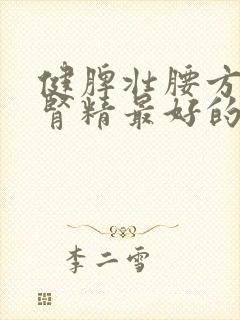 健脾壮腰方
肾精最好的
李二雪